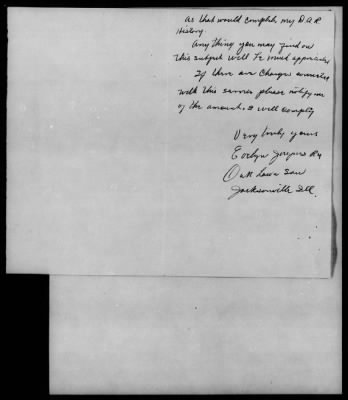 as that would complete my D A R
History.
Any thing you may find on
this subject will be much appreciated
If there are charges connected
with this service please notify me
of the amount, I will comply
Very truly yours
Evelyn
Oak Lawn San
Jacksonville Ill.